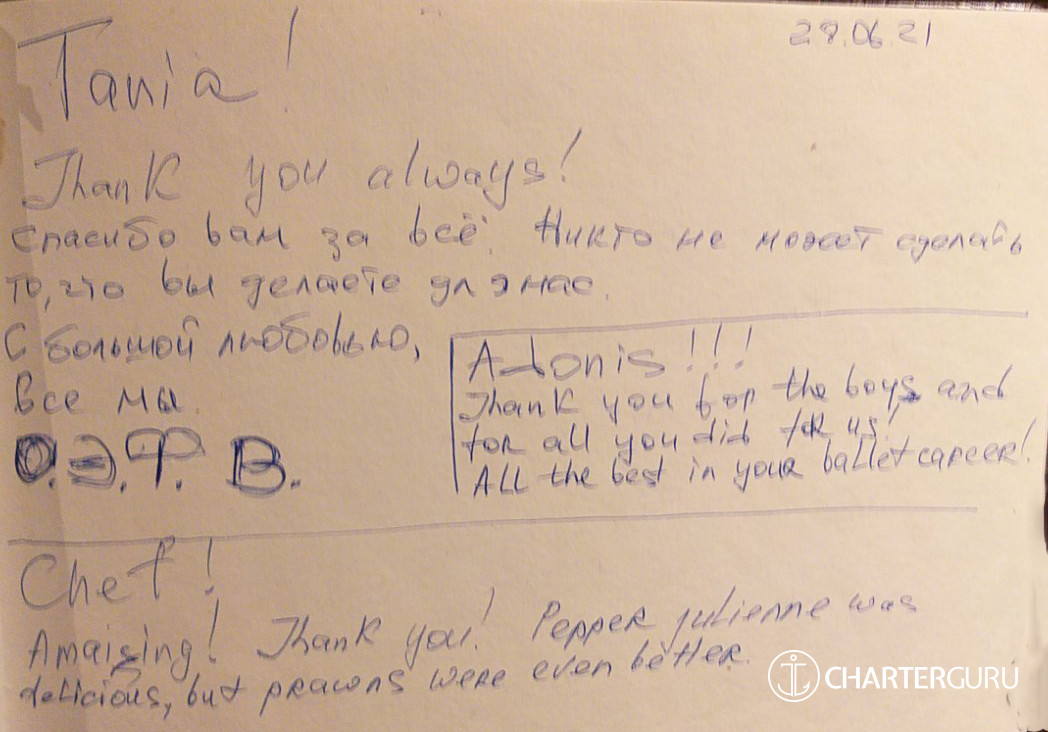 28.06.21
Tania!
Thank you always!
Спасибо вам за всё. Никто не может сделать
то, что вы делаете для нас.
С большой любовью,
все мы.
О.Э.Ф. В.
Adonis!!!
Thank you for the boys and
for all you did for us!
All the best in your ballet career!
Chef!
Amaizing! Thank you! Pepper julienne was
delicious, but prawns were even better.
CHARTERGURU